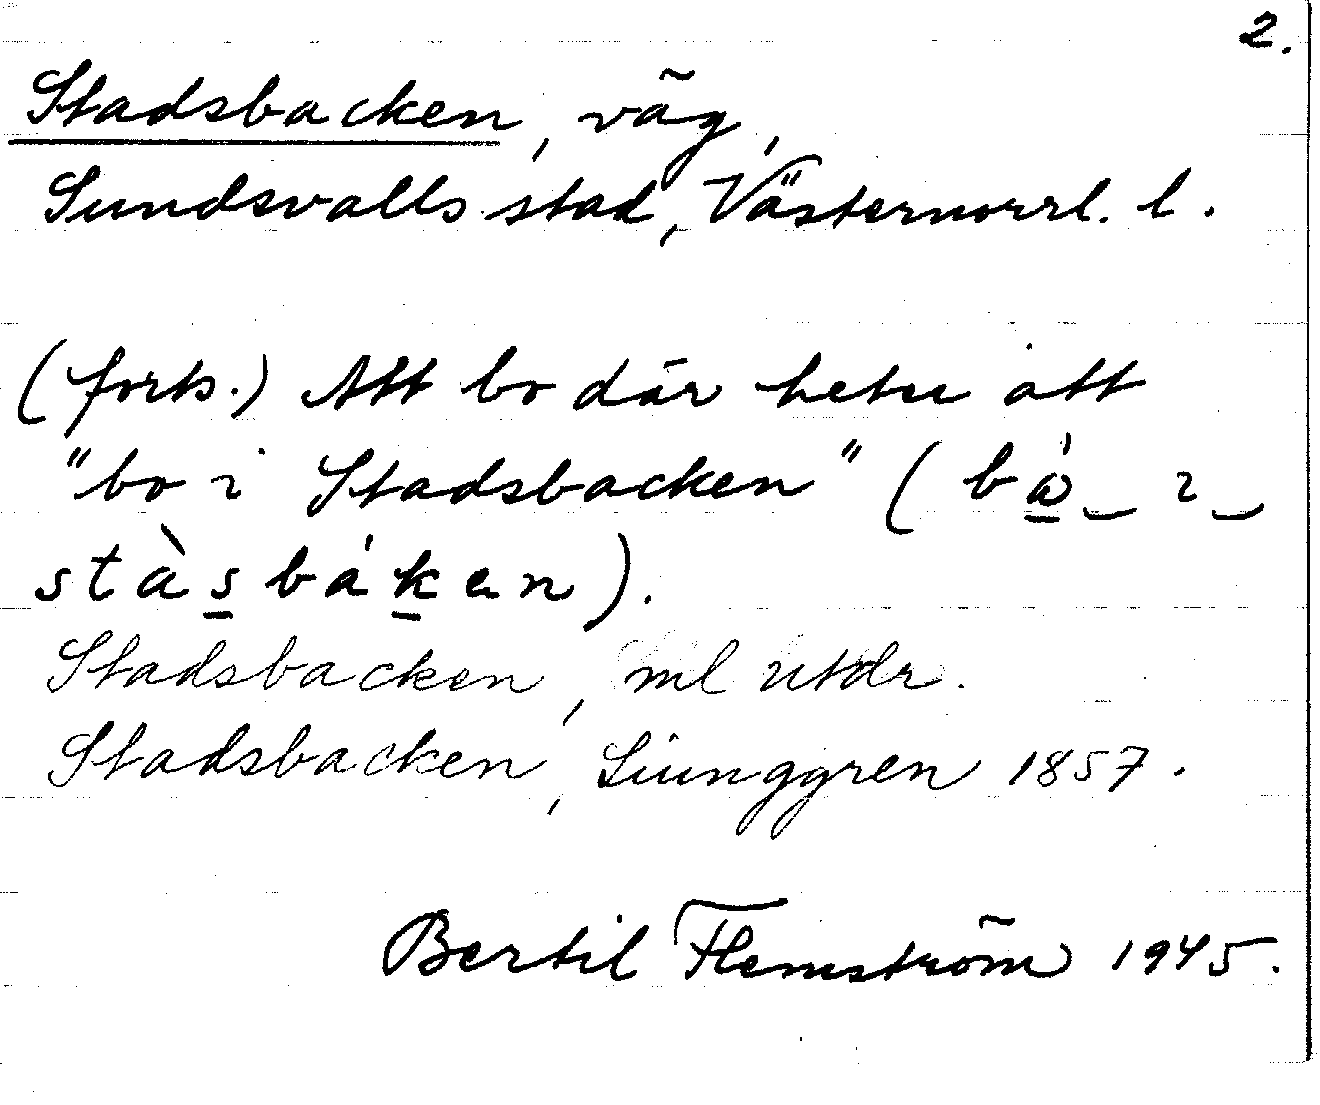 2.
Stadsbacken, väg,
Sundsvalls stad, Västernorrl. l.
(forts.) Att bo där heter att
"bo i Stadsbacken" (
stàsbákan).
Stadsbacken, ml utdr.
Stadsbacken, Liunggren 1857.
Bertil Flemström 1945.